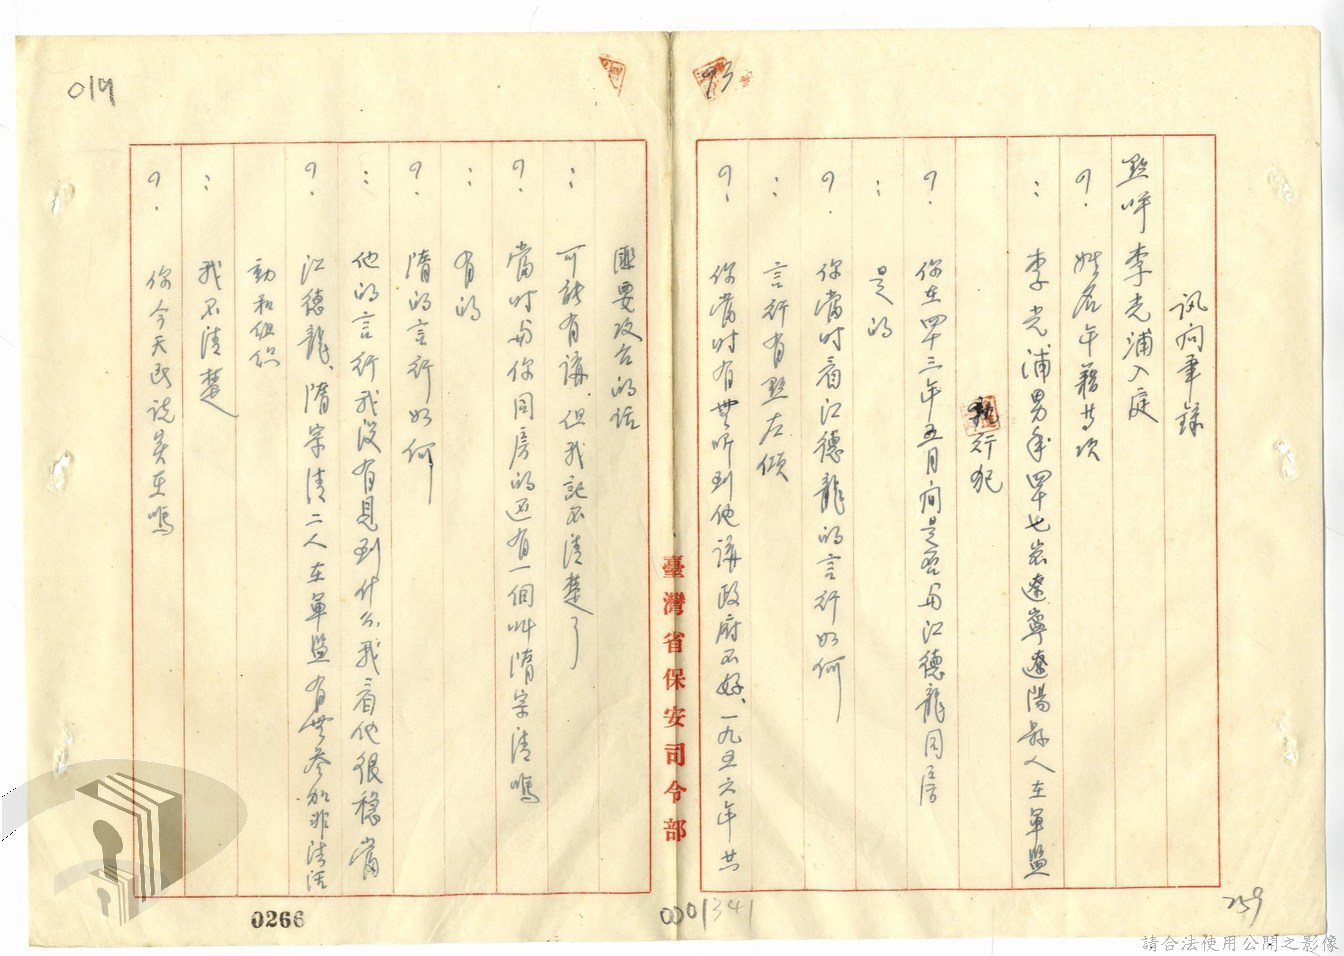 019
93
訊问筆錄
點呼李光浦入庭
？姓名年籍等項
：李光浦男年四十七岁遼寧遼陽縣人在軍監
執行犯
？你在四十三年五月间是否与江德龍同房
：是的
？你當时看江德龍的言行如何
：言行有點左傾
？你當时有無听到他講政府不好、一九五六年共
匪要攻台的话
：可能有講、但我記不清楚了
？當时与你同房的还有一個叫隋宗清嗎
：有的
？隋的言行如何
：他的言行我没有見到什么我看他很穩當
？江德龍、隋宗清二人在軍監有無参加非法活
動和组织
：我不清楚
？你今天所说实在嗎
臺灣省保安司令部
0266
0001341
259
請合法使用公開之影像